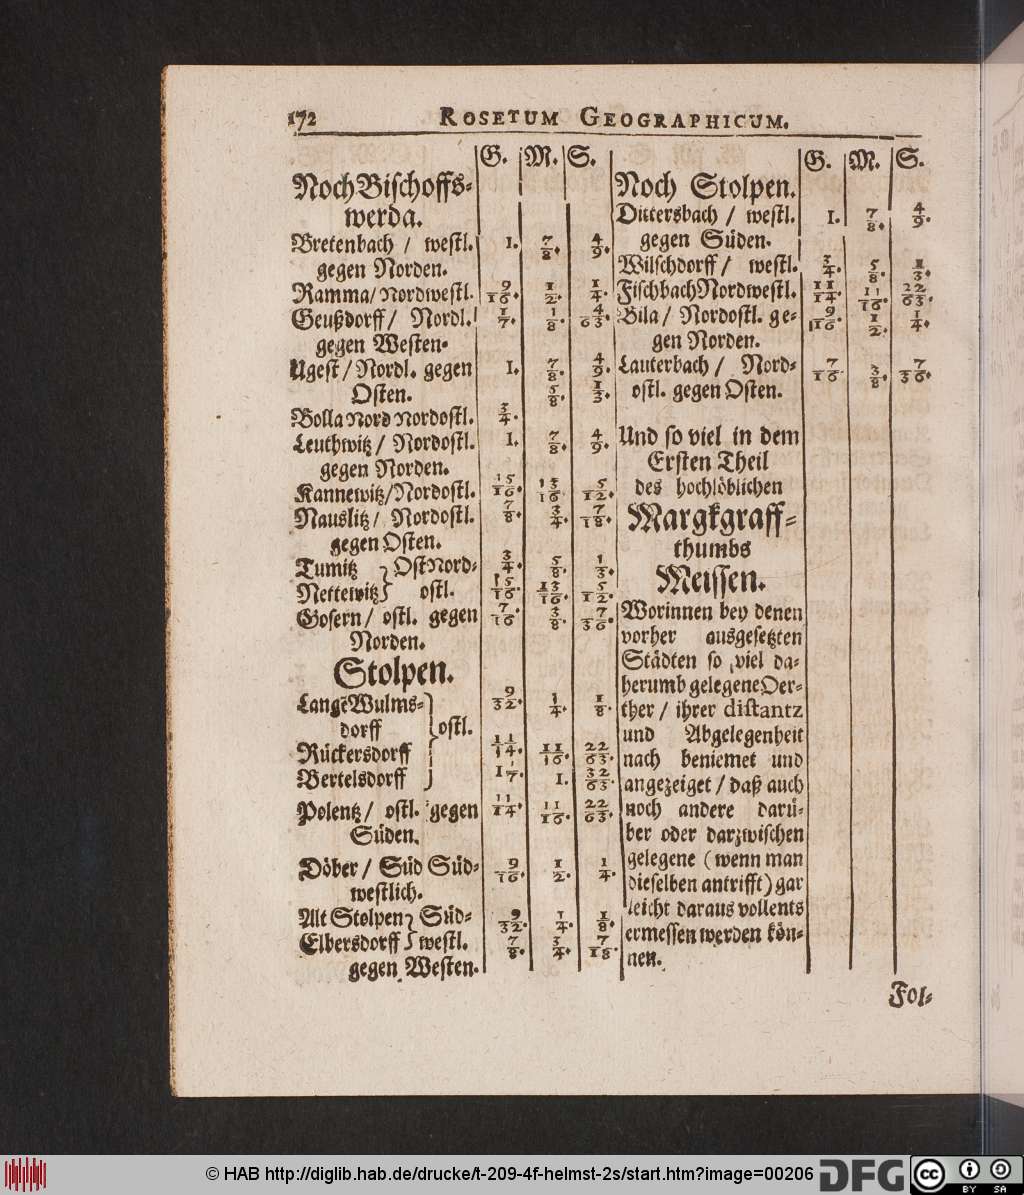 172 ROSETUM GEOGRAPHICUM.
G. M. S.
Noch Bischoffs-
werda.
Bretenbach / westl. 1. 7/8. 4/9.
gegen Norden.
Ramma / Nordwestl. 9/16. 1/2. 1/4.
Geußdorff / Nordl. 1/7. 1/8. 4/63.
gegen Westen.
Ugest / Nordl. gegen 1. 7/8. 4/9.
Osten. 5/8. 1/3.
Bolla Nord Nordostl. 3/4.
Leuthwitz / Nordostl. 1. 7/8. 4/9.
gegen Norden.
Kannewitz / Nordostl. 15/16. 13/16. 5/12.
Nauslitz / Nordostl. 7/8. 3/4. 7/18.
gegen Osten.
Tumitz } Ost Nord- 3/4. 5/8. 1/3.
Nettewitz } ostl. 15/16. 13/16. 5/12.
Gosern / ostl. gegen 7/16. 3/8. 7/36.
Norden.
Stolpen.
Langẽ Wulms-
dorff } ostl. 9/32. 1/4. 1/8.
Rückersdorff 11/14. 11/16. 22/63.
Bertelsdorff 1 1/7. 1. 32/63.
Polentz / ostl. gegen 11/14. 11/16. 22/63.
Süden.
Döber / Süd Süd- 9/16. 1/2. 1/4.
westlich.
Alt Stolpen } Süd- 9/32. 1/4. 1/8.
Elbersdorff } westl. 7/8. 3/4. 7/18.
gegen Westen.
G. M. S.
Noch Stolpen.
Dittersbach / westl. 1. 7/8. 4/9.
gegen Süden.
Wilschdorff / westl. 3/4. 5/8. 1/3.
Fischbach Nordwestl. 11/14. 11/16. 22/63.
Bila / Nordostl. ge- 9/16. 1/2. 1/4.
gen Norden.
Lauterbach / Nord- 7/16 3/8. 7/36.
ostl. gegen Osten.
Und so viel in dem
Ersten Theil
des hochlöblichen
Margkgraff-
thumbs
Meissen.
Worinnen bey denen
vorher ausgesetzten
Städten so viel da-
herumb gelegene Oer-
ther / ihrer distantz
und Abgelegenheit
nach beniemet und
angezeiget / daß auch
noch andere darü-
ber oder darzwischen
gelegene (wenn man
dieselben antrifft) gar
leicht daraus vollents
ermessen werden kön-
nen.
Fol-
© HAB http://diglib.hab.de/drucke/t-209-4f-helmst-2s/start.htm?image=00206
DFG
cc BY SA